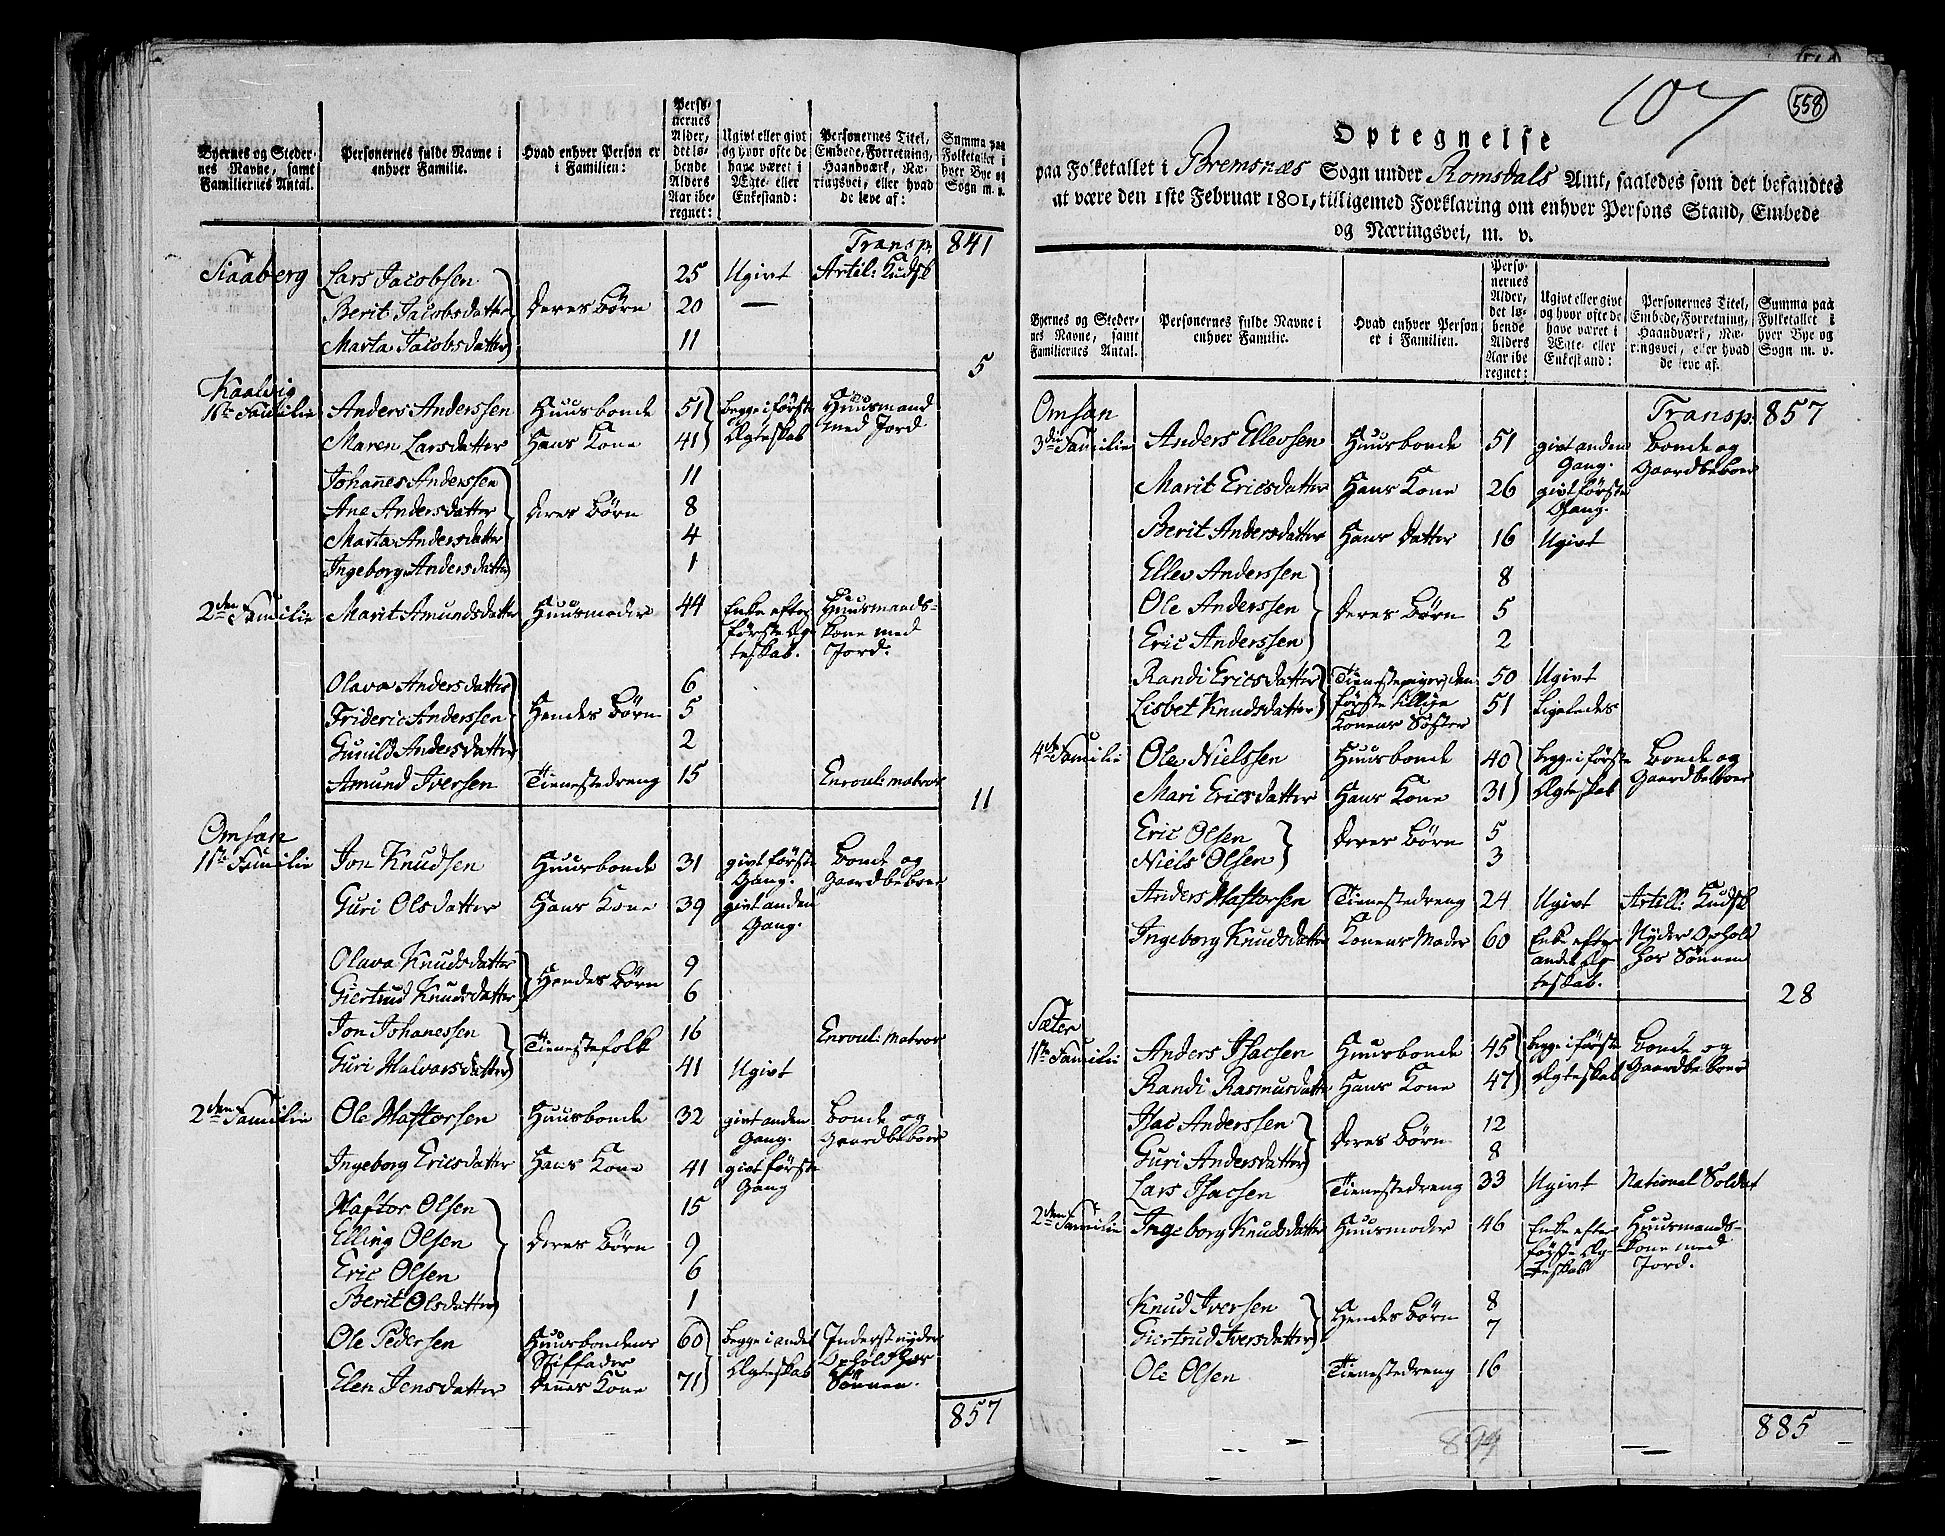 Byernes og Steder-
nes Navne, samt
Familiernes Antal.
Personernes fulde Navne i
enhver Familie.
Hvad enhver Person er
i Familien:
Perso-
nernes
Alder,
det lø-
bende
Alders
Aar ibe-
regnet:
Ugivt eller givt
og hvor ofte de
have været i
Ægte- eller
Enkestand:
Personernes Titel,
Embede, Forretning,
Haandværk, Næ-
ringsvei, eller hvad
de leve af:
Summa paa
Folketallet i
hver Bye og
Sogn m. v.
Transp. 841
Siaaberg Lars Jacobsen 25 Ugivt Artil: Kudsk
Berit Jacobsdatter Deres Børn 20 —
Marta Jacobsdatter 11
5
Kaalvig
1ste Familie Anders Anderssen Huusbonde 51 begge i første Huusmand
Maren Larsdatter Hans Kone 41 Ægteskab med Jord
Johannes Anderssen 11
Ane Andersdatter Deres Børn 8
Marta Andersdatter 4
Ingeborg Andersdatter 1
2den Familie Marit Amundsdatter Huusmoder 44 Enke efter Huusmands-
første Æg- kone med
teskab. Jord.
Olava Andersdatter 6
Frideric Anderssen Hendes Børn 5
Gunild Andersdatter 2
Amund Iversen Tienestedreng 15 Enroul: matros
11
Omsan
1ste Familie Jon Knudsen Huusbonde 31 givt første Bonde og
Gang. Gaardbeboer
Guri Olsdatter Hans Kone 39 givt anden
Gang.
Olava Knudsdatter 9
Giertrud Knudsdatter Hendes Børn 6
Jon Johanessen 16 Enroul: Matros
Guri Halvorsdatter Tienestefolk 41 Ugivt
2den Familie Ole Hastorsen Huusbonde 32 givt anden Bonde og
Gang. Gaardbeboer
Ingeborg Ericsdatter Hans Kone 41 givt første
Gang
Haftor Olsen 15
Elling Olsen Deres Børn 9
Eric Olsen 6
Berit Olsdatter 1
Ole Pedersen Huusbondens 60 begge i andet Inderst nyder
Stiffader Ægteskab Ophold hos
Elen Jensdatter Dennes Kone 71 Sönnen.
857
107
558
Optegnelse
paa Folketallet i Bremsnæs Sogn under Romsdals Amt, saaledes som det befandtes
at være den 1ste Februar 1801, tilligemed Forklaring om enhver Persons Stand, Embede
og Næringsvei, m. v.
Byernes og Steder-
nes Navne, samt
Familiernes Antal.
Personernes fulde Navne i
enhver Familie.
Hvad enhver Person
er i Familien.
Perso-
nernes
Alder,
det lø-
bende
Alders
Aar ibe
regnet:
Ugivt eller givt
og hvor ofte de
have været i
Ægte- eller
Enkestand:
Personernes Titel,
Embede, Forretning,
Haandværk, Næ-
ringsvei, eller hvad
de leve af.
Summa paa
Folketallet i
hver Bye og
Sogn m. v.
Omsan Transp: 857
3die Familie Anders Ellevsen Huusbonde 51 givt anden Bonde og
Gang. Gaardbeboer
Marit Ericsdatter Hans Kone 26 givt første
Gang.
Berit Andersdatter Hans Datter 16 Ugivt
Ellev Anderssen 8
Ole Anderssen Deres Børn 5
Eric Anderssen 2
Randi Ericsdatter Tienestepiger, den 50 Ugivt
Lisbet Knudsdatter første tillige 51 Ligeledes
Konens Søster
4de Familie Ole Nielssen Huusbonde 40 begge i første Bonde og
Mari Ericsdatter Hans Kone 31 Ægteskab Gaardbeboer
Eric Olsen Deres Børn 5
Niels Olsen 3
Anders Haftorsen Tienestedreng 24 Ugivt Artill: Kudsk
Ingeborg Knudsdatter Konens Moder 60 Enke efter Nyder Ophold
andet Æg- hos Sønnen
teskab.
28
Sæter
1ste Familie Anders Isacsen Huusbonde 45 begge i første Bonde og
Randi Rasmusdatter Hans Kone 47 Ægteskab Gaardbeboer
Isac Anderssen 12
Guri Andersdatter Deres Børn 8
Lars Isacsen Tienestedreng 33 Ugivt National Soldat
2den Familie Ingeborg Knudsdatter Huusmoder 46 Enke efter Huusmands-
første Æg- kone med
teskab Jord.
Knud Iversen 8
Giertrud Iversdatter Hendes Børn 7
Ole Olsen Tienestedreng 16
885